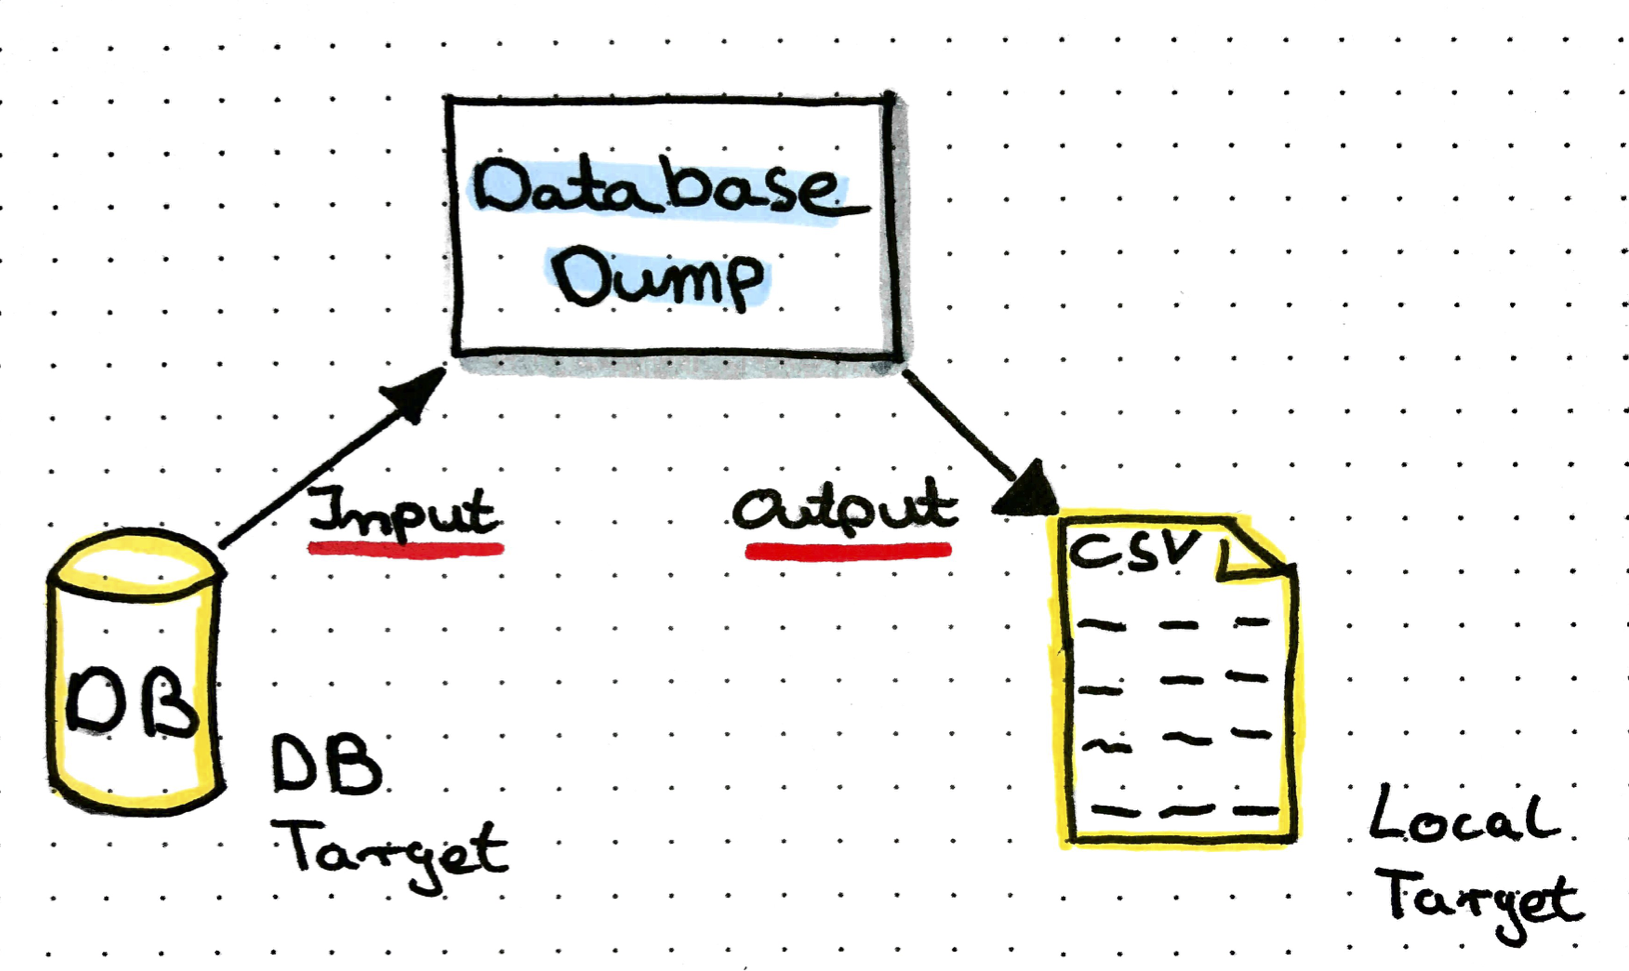 Database
Dump
Input
Output
CSV
DB
DB
Target
Local
Target